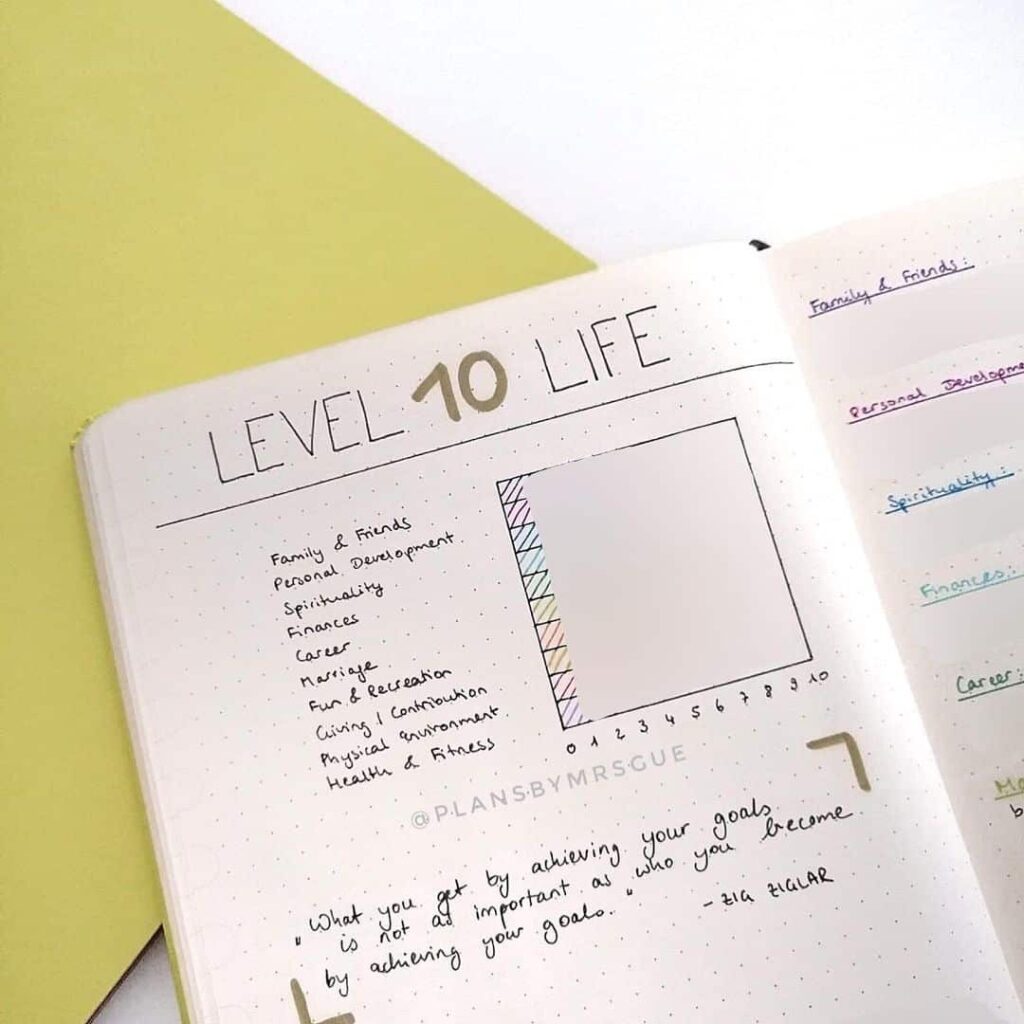 LEVEL 10 LIFE
Family & Friends
Personal Development
Spirituality
Finances
Career
Marriage
Fun & Recreation
Giving / Contribution
Physical Environment
Health & Fitness
0 1 2 3 4 5 6 7 8 9 10
@PLANSBYMRSGUE
„What you get by achieving your goals
is not as important as who you become
by achieving your goals."
- ZIG ZIGLAR
Family & Friends:
Personal Developme
Spirituality:
Finances:
Career: